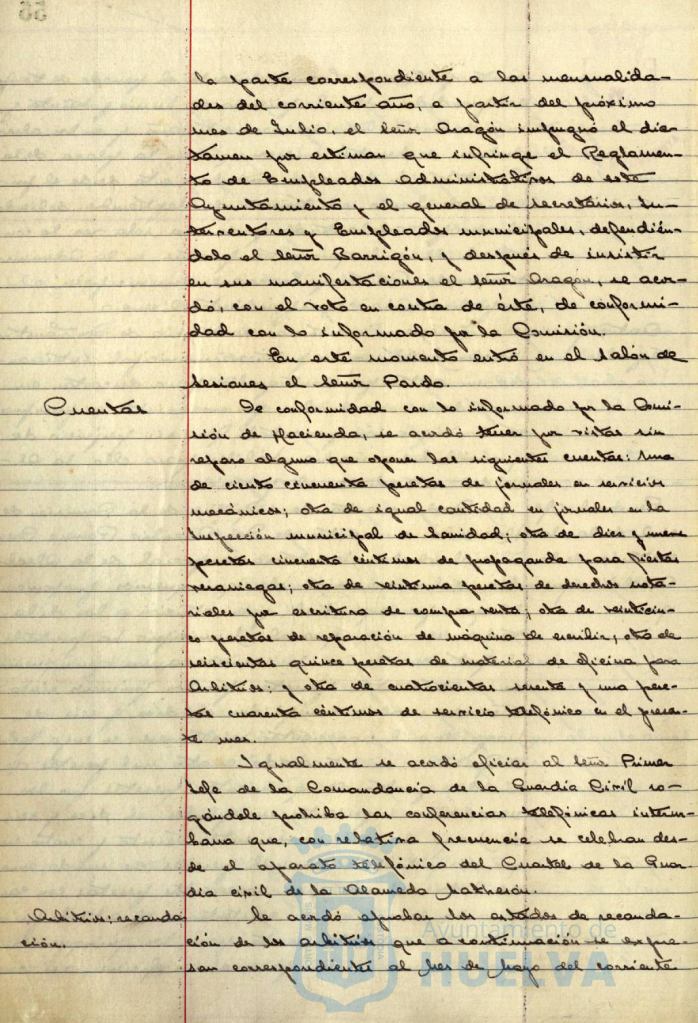 la parte correspondiente a las mensualida-
des del corriente año, a partir del próximo
mes de Julio, el señor Aragón impugnó el dic-
tamen por estimar que infringe el Reglamen-
to de Empleados Administrativos de este
Ayuntamiento y el general de secretarios, In-
terventores y Empleados municipales, defendién-
dolo el señor Barrigón, y después de insistir
en sus manifestaciones el señor Aragón, se acor-
dó, con el voto en contra de éste, de conformi-
dad con lo informado por la Comisión.
En este momento entró en el salón de
sesiones el señor Pardo.
Cuentas
De conformidad con lo informado por la Comi-
sión de Hacienda, se acordó tener por vistas sin
reparo alguno que oponer las siguientes cuentas: Una
de ciento cincuenta pesetas de jornales en servicios
mecánicos; otra de igual cantidad en jornales en la
Inspección municipal de Sanidad; otra de diez y nueve
pesetas cincuenta céntimos de propaganda para fiestas
veraniegas; otra de veintiuna pesetas de derechos nota-
riales por escritura de compra venta; otra de veinticin-
co pesetas de reparación de máquina de escribir; otra de
seiscientas quince pesetas de material de oficina para
Arbitrios; y otra de cuatrocientas sesenta y una pese-
tas cuarenta céntimos de servicio telefónico en el presen-
te mes.
Igualmente se acordó oficiar al señor Primer
Jefe de la Comandancia de la Guardia Civil ro-
gándole prohiba las conferencias telefónicas interur-
bana que, con relativa frecuencia se celebran des-
de el aparato telefónico del Cuartel de la Guar-
dia civil de la Alameda Sundheim.
Arbitrios; recauda-
ción.
Se acordó aprobar los estados de recauda-
ción de los arbitrios que a continuación se expre-
san correspondientes al mes de Mayo del corriente
Ayuntamiento de
HUELVA
55